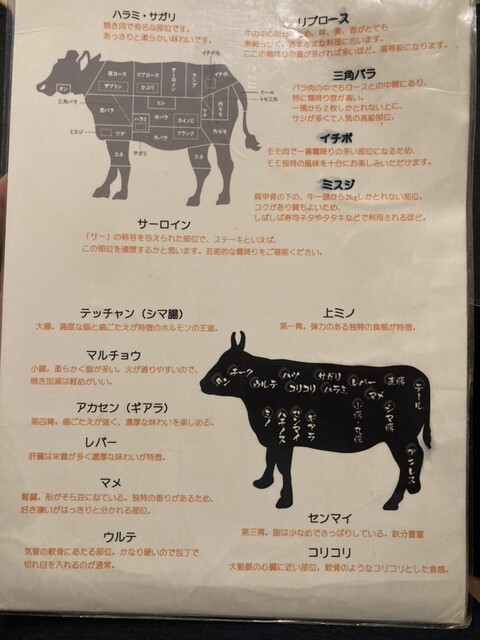 ハラミ・サガリ
焼き肉で有名な部位です。
あっさりと柔らかい味わいです。
リブロース
三角バラ
バラ肉の中でもロースとの中間にあり、
特に霜降り度が高い。
一頭から２枚しかとれない上に、
サシが多くて人気の高級部位。
イチボ
モモ肉で一番霜降りの多い部位になるため、
モモ独特の風味を十分にお楽しみいただけます。
ミスジ
肩甲骨の下の、牛一頭から2kgしかとれない部位。
コクがあり質もよいため、
しばしば寿司ネタやタタキなどで利用されるほど。
イチボ
肩ロース
リブロース
サーロイン
ランプ
イチボ
タン
ザブトン
かぶり
ヒレ
テール
トモ三角
三角バラ
肩バラ
ハラミ
中バラ
カイノミ
内モモ
ミスジ
ウデ
外バラ
フランク
外モモ
スネ
サガリ
スネ
サーロイン
「サー」の称号を与えられた部位で、ステーキといえば、
この部位を連想するかと思います。芸術的な霜降りをご堪能ください。
テッチャン（シマ腸）
大腸。適度な脂と歯ごたえが特徴のホルモンの王道。
上ミノ
第一胃。弾力のある独特の食感が特徴。
マルチョウ
小腸。柔らかく脂が多い。火が通りやすいので、
焼き加減は軽めがいい。
アカセン（ギアラ）
第四胃。歯ごたえが強く、濃厚な味わいを楽しめる。
レバー
肝臓は栄養が多く濃厚な味わいが特徴。
マメ
腎臓。形がそら豆に似ている。独特の香りがあるため、
好き嫌いがはっきりと分かれる部位。
ウルテ
気管の軟骨にあたる部位。かなり硬いので包丁で
切れ目を入れるのが通常。
タン
チーク
ウルテ
ハツ
コリコリ
サガリ
ハラミ
レバー
マメ
直腸
テール
ミノ
ハチノス
センマイ
ギアラ
小腸・丸腸
シマ腸
アキレス
センマイ
第三胃。脂は少なめでさっぱりしている。鉄分豊富
コリコリ
大動脈の心臓に近い部位。軟骨のようなコリコリとした食感。